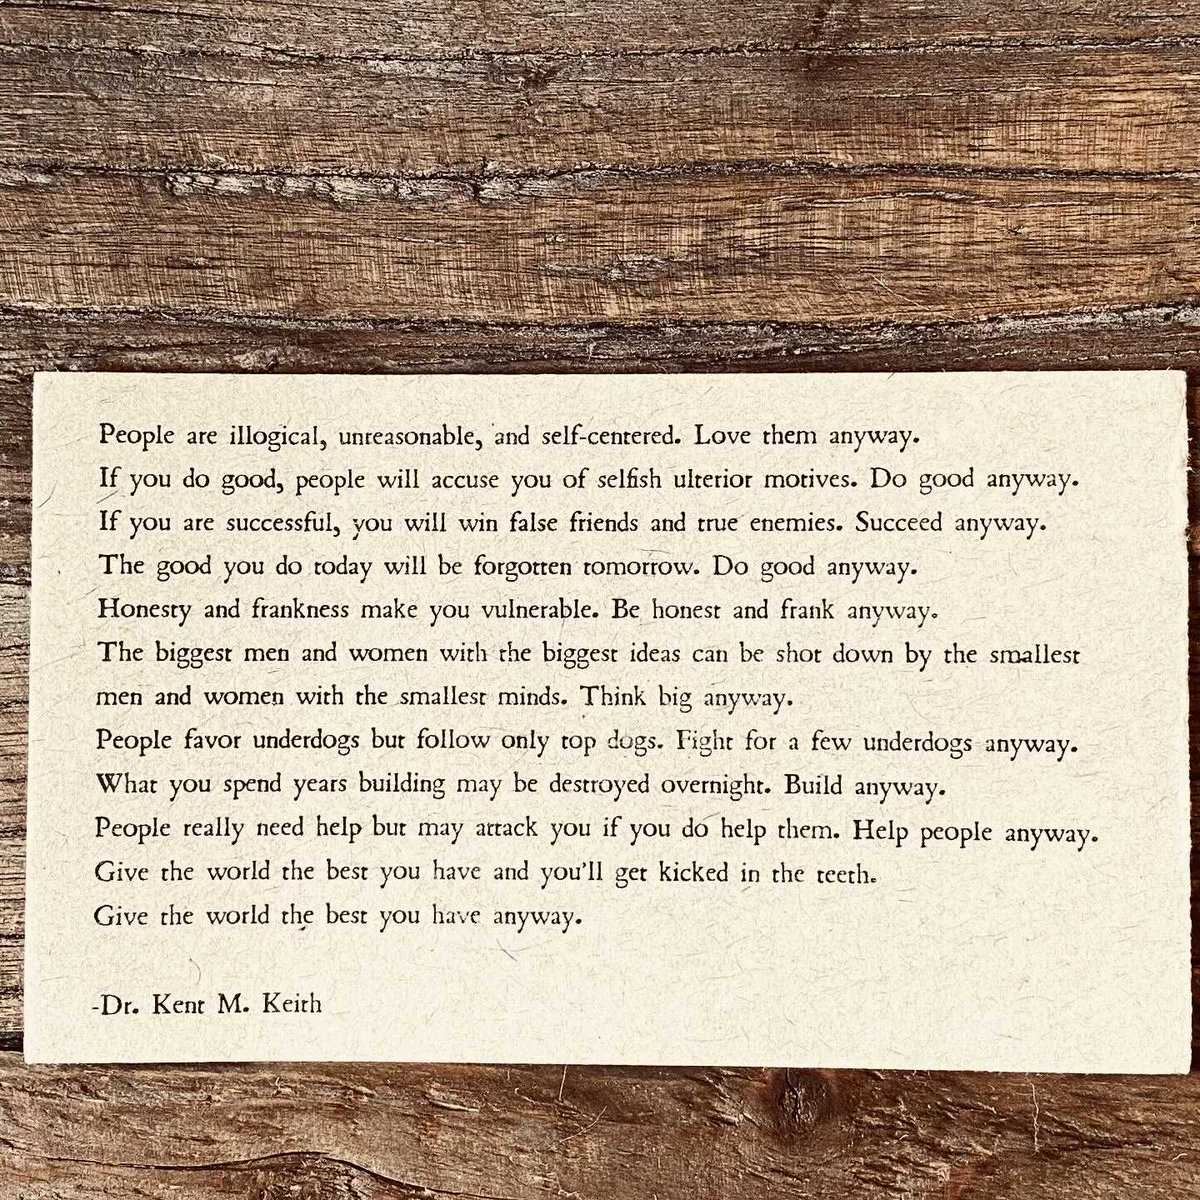 People are illogical, unreasonable, and self-centered. Love them anyway.
If you do good, people will accuse you of selfish ulterior motives. Do good anyway.
If you are successful, you will win false friends and true enemies. Succeed anyway.
The good you do today will be forgotten tomorrow. Do good anyway.
Honesty and frankness make you vulnerable. Be honest and frank anyway.
The biggest men and women with the biggest ideas can be shot down by the smallest
men and women with the smallest minds. Think big anyway.
People favor underdogs but follow only top dogs. Fight for a few underdogs anyway.
What you spend years building may be destroyed overnight. Build anyway.
People really need help but may attack you if you do help them. Help people anyway.
Give the world the best you have and you'll get kicked in the teeth.
Give the world the best you have anyway.
-Dr. Kent M. Keith